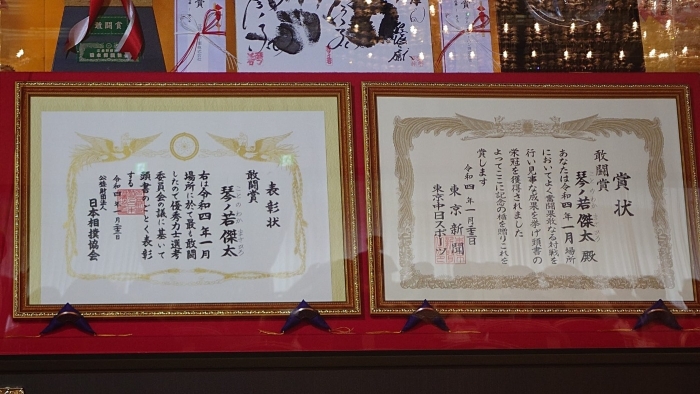 敢闘賞
日本相撲協会
表彰状
敢闘賞
琴ノ若傑太
右は令和四年一月
場所に於て最も敢闘
したので優秀力士選考
委員会の議に基いて
頭書のごとく表彰
する
令和四年一月二十三日
公益財団法人
日本相撲協会
賞状
敢闘賞
琴ノ若傑太 殿
あなたは令和四年一月場所
においてよく奮闘果敢なる対戦を
行い見事な成果を挙げ頭書の
栄冠を獲得されました
よってここに記念の楯を贈りこれを
賞します
令和四年一月二十三日
東京新聞
東京中日スポーツ